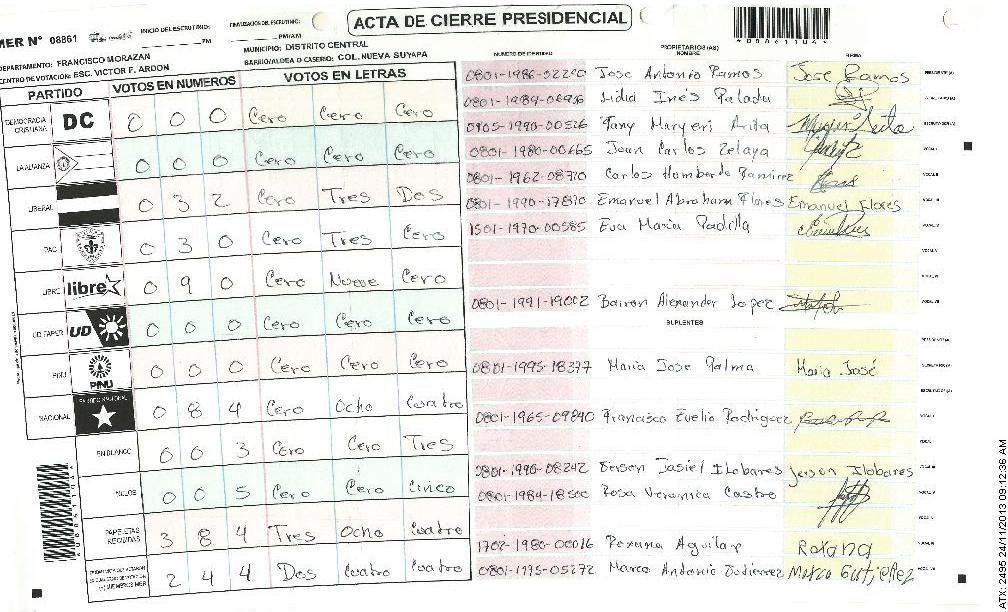 ACTA DE CIERRE PRESIDENCIAL
MER N° 08861
INICIO DEL ESCRUTINIO: PM
FINALIZACION DEL ESCRUTINIO: PM/AM
DEPARTAMENTO: FRANCISCO MORAZAN
MUNICIPIO: DISTRITO CENTRAL
CENTRO DE VOTACION: ESC. VICTOR F. ARDON
BARRIO/ALDEA O CASERIO: COL. NUEVA SUYAPA
PARTIDO VOTOS EN NUMEROS VOTOS EN LETRAS
DEMOCRACIA CRISTIANA DC 0 0 0 Cero Cero Cero
LA ALIANZA 0 0 0 Cero Cero Cero
LIBERAL 0 3 2 Cero Tres Dos
PAC 0 3 0 Cero Tres Cero
LIBRE libre 0 9 0 Cero Nueve Cero
UD FAPER UD 0 0 0 Cero Cero Cero
PINU PINU 0 0 0 Cero Cero Cero
NACIONAL 0 8 4 Cero Ocho Cuatro
EN BLANCO 0 0 3 Cero Cero Tres
NULOS 0 0 5 Cero Cero Cinco
PAPELETAS RECIBIDAS 3 8 4 Tres Ocho Cuatro
2 4 4 Dos Cuatro Cuatro
NUMERO DE IDENTIDAD PROPIETARIOS (AS) NOMBRE FIRMA
Jose Antonio Ramos Jose Ramos PRESIDENTE (A)
Lidia Inés
Juan Carlos Zelaya
0801-1962-08770 Carlos Humberto Ramirez
0801-1990-17870 Emanuel Abraham Flores Emanuel Flores
1501-1970-00585 Eva Maria Padilla
0801-1991-19002 Bairon Alexander Lopez
SUPLENTES
0801-1995-18377 Maria Jose Palma Maria José
0801-1965-09840 Francisco Evelio Rodriguez
0801-1990-08242
0801-1984-18500 Rosa Veronica Castro
1702-1980-00016 Roxana Aguilar Roxana
0801-1975-05272 Marco Antonio Gutierrez Marco Gutierrez
ATX: 2495 24/11/2013 09:12:36 AM